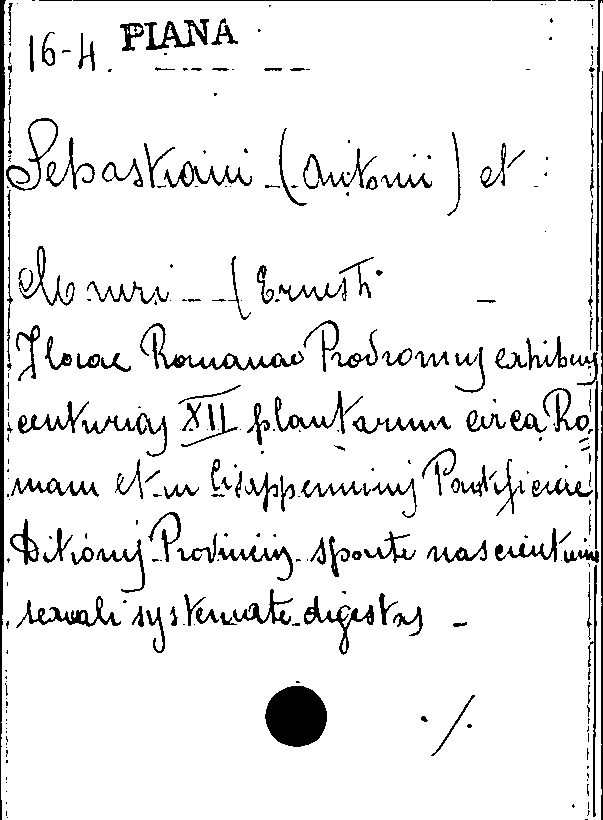 16-4. PIANA
Sebastiani (Antonii) et
Mauri (Ernesti
Florae Romanae Prodromus exhibens
centurias XII plantarum circa Ro=
mam et in Cisappenninis Pontificiae
Ditionis Provinciis sponte nascentium
sexuali systemate digestas -
./.